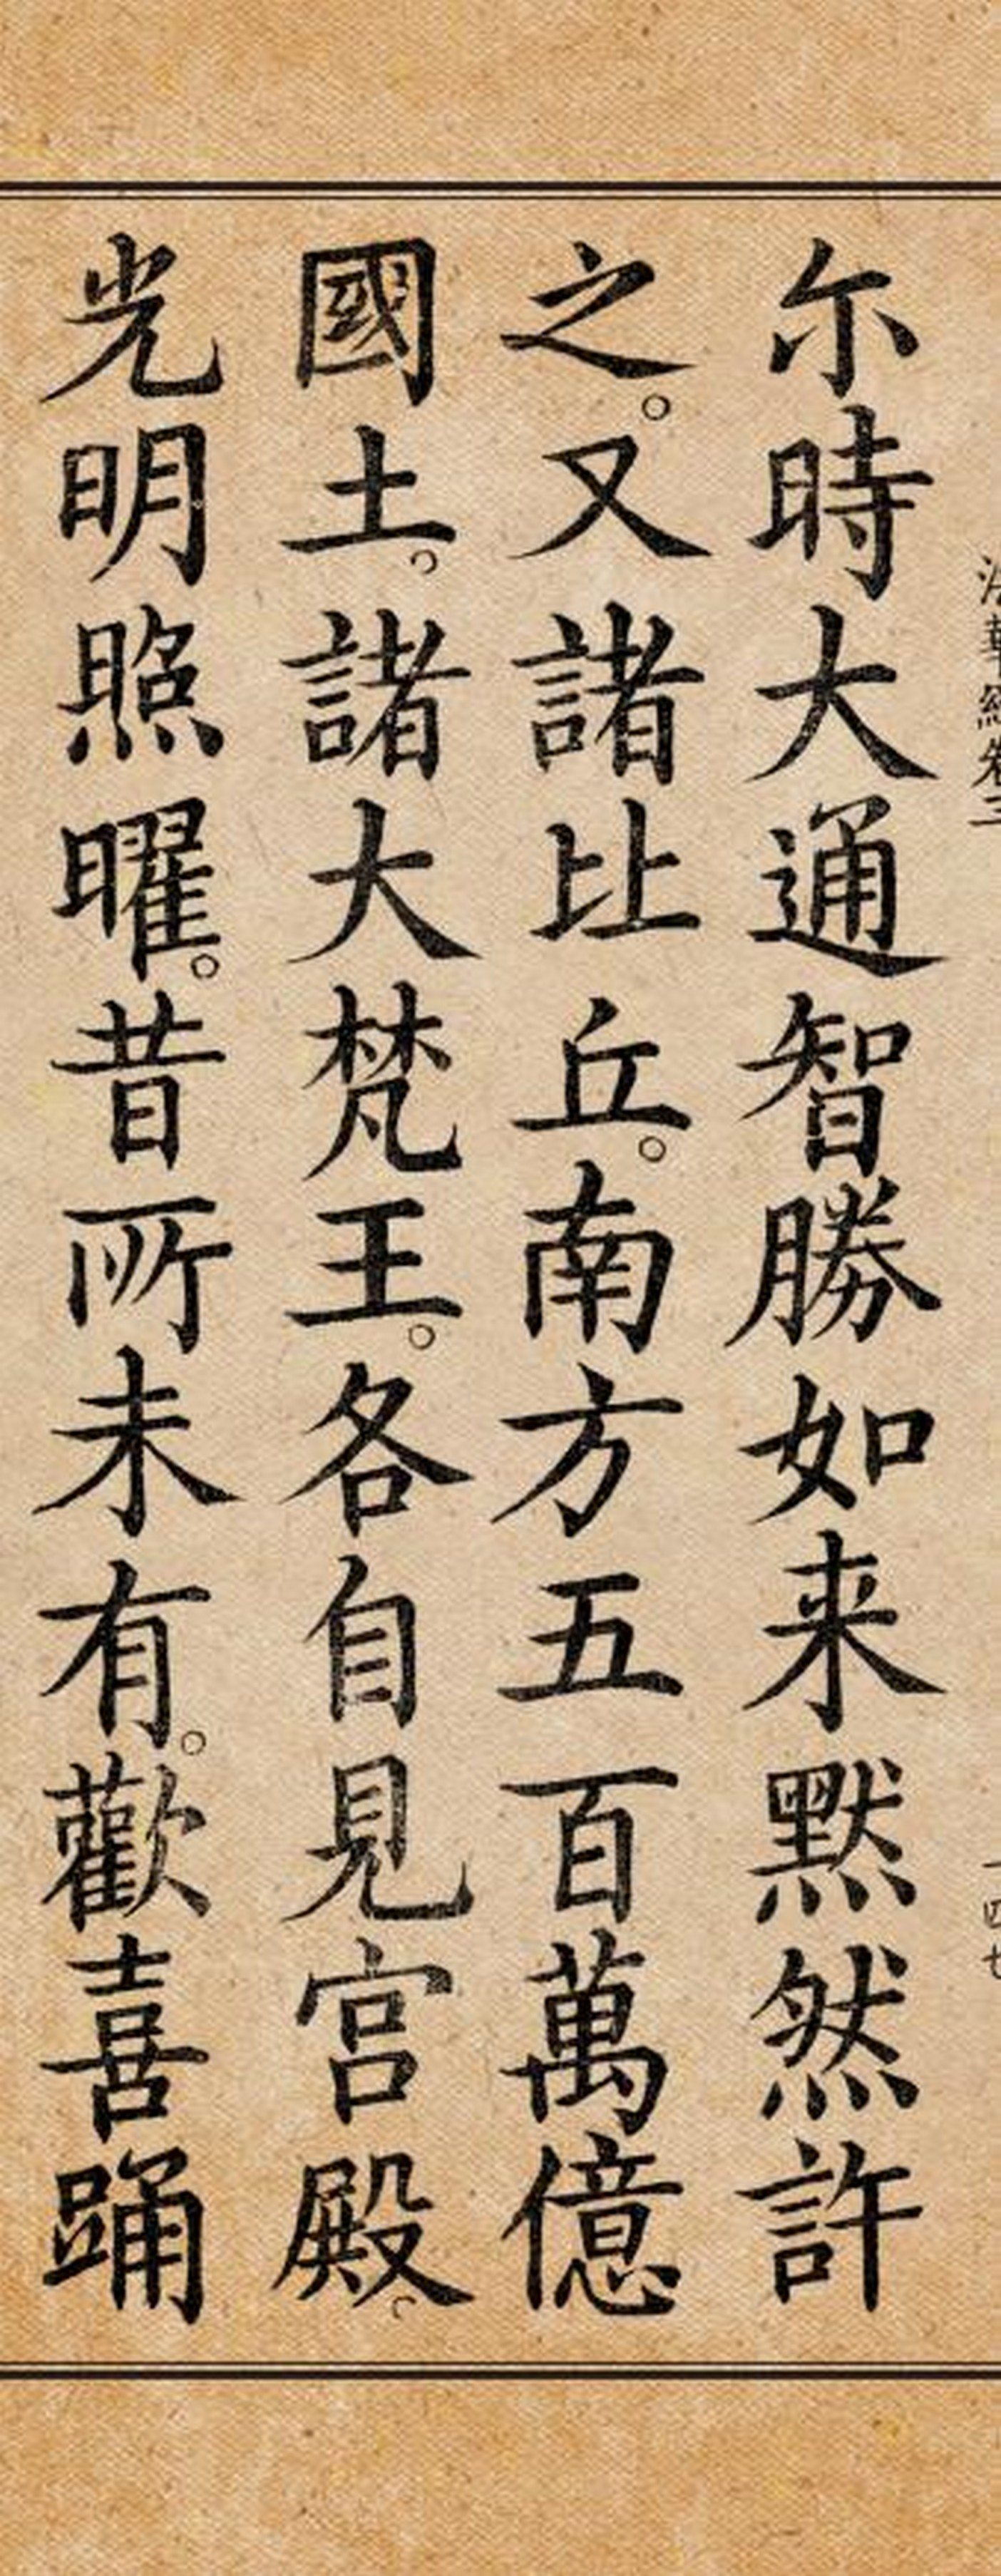 法華經卷三
一 四七
尓時大通智勝如来默然許
之。又諸比丘。南方五百萬億
國土。諸大梵王。各自見宫殿。
光明照曜。昔所未有。歡喜踊